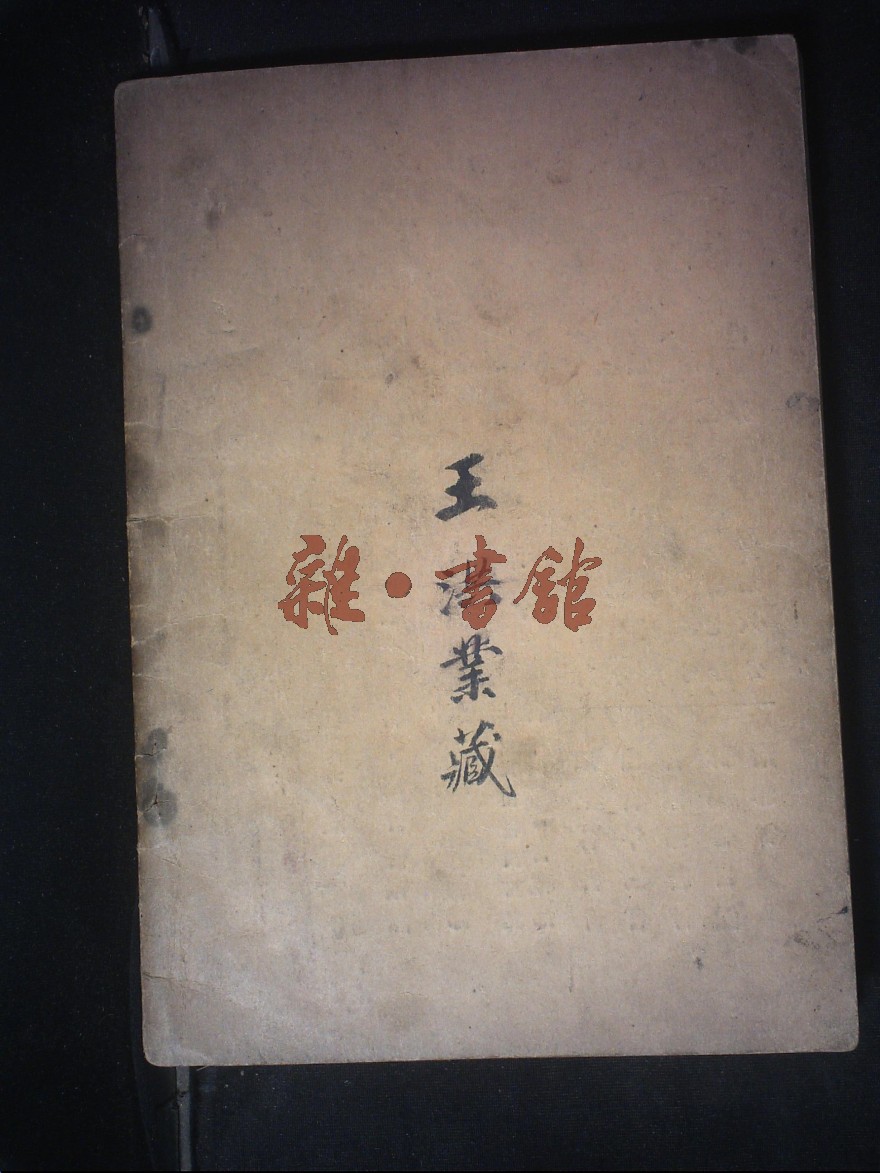 王
業
藏
雜·書館